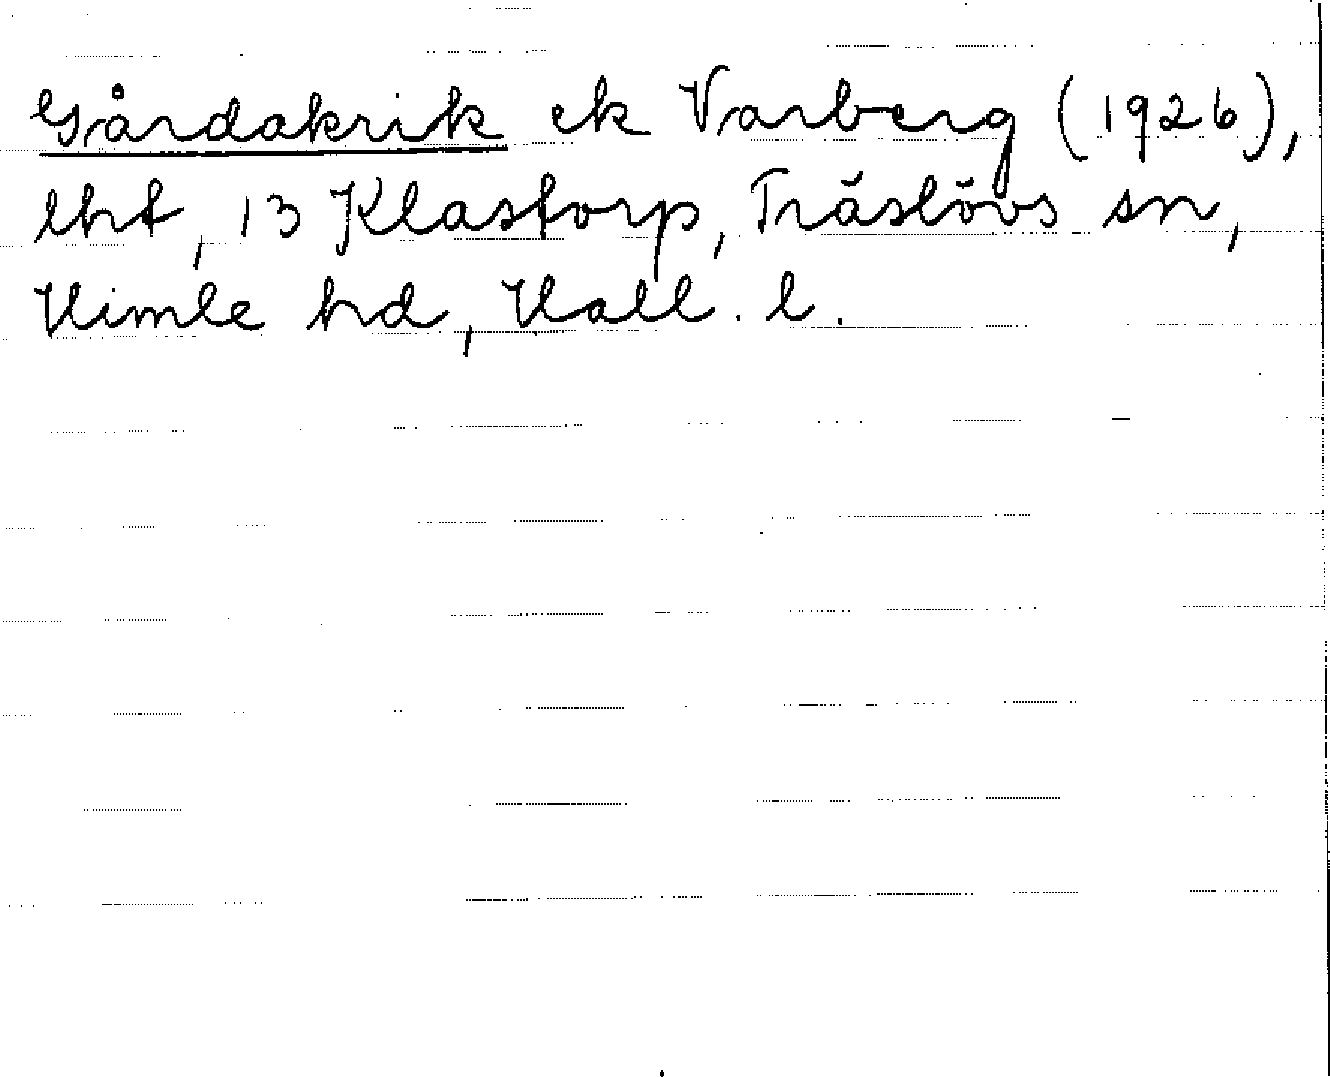 Gårdakrik ek Varberg (1926),
lht, 13 Klastorp, Träslövs sn,
Himle hd, Hall. l.